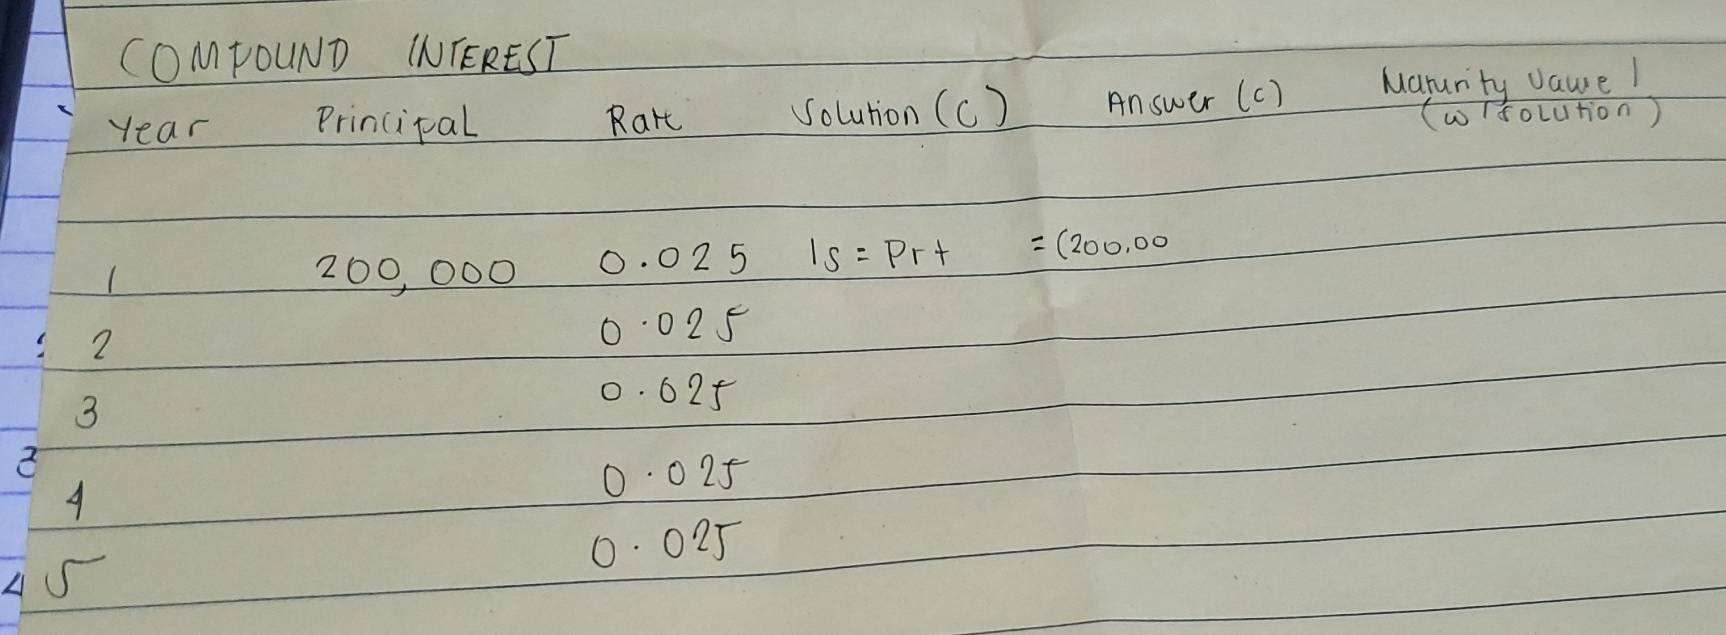 COMPOUND INTEREST
Year Principal Rate Solution (C) Answer (C) Maturity Value
(w/ solution)
1 200,000 0.025 Is = Prt = (200,00
2 0.025
3 0.025
4 0.025
5 0.025
3
4